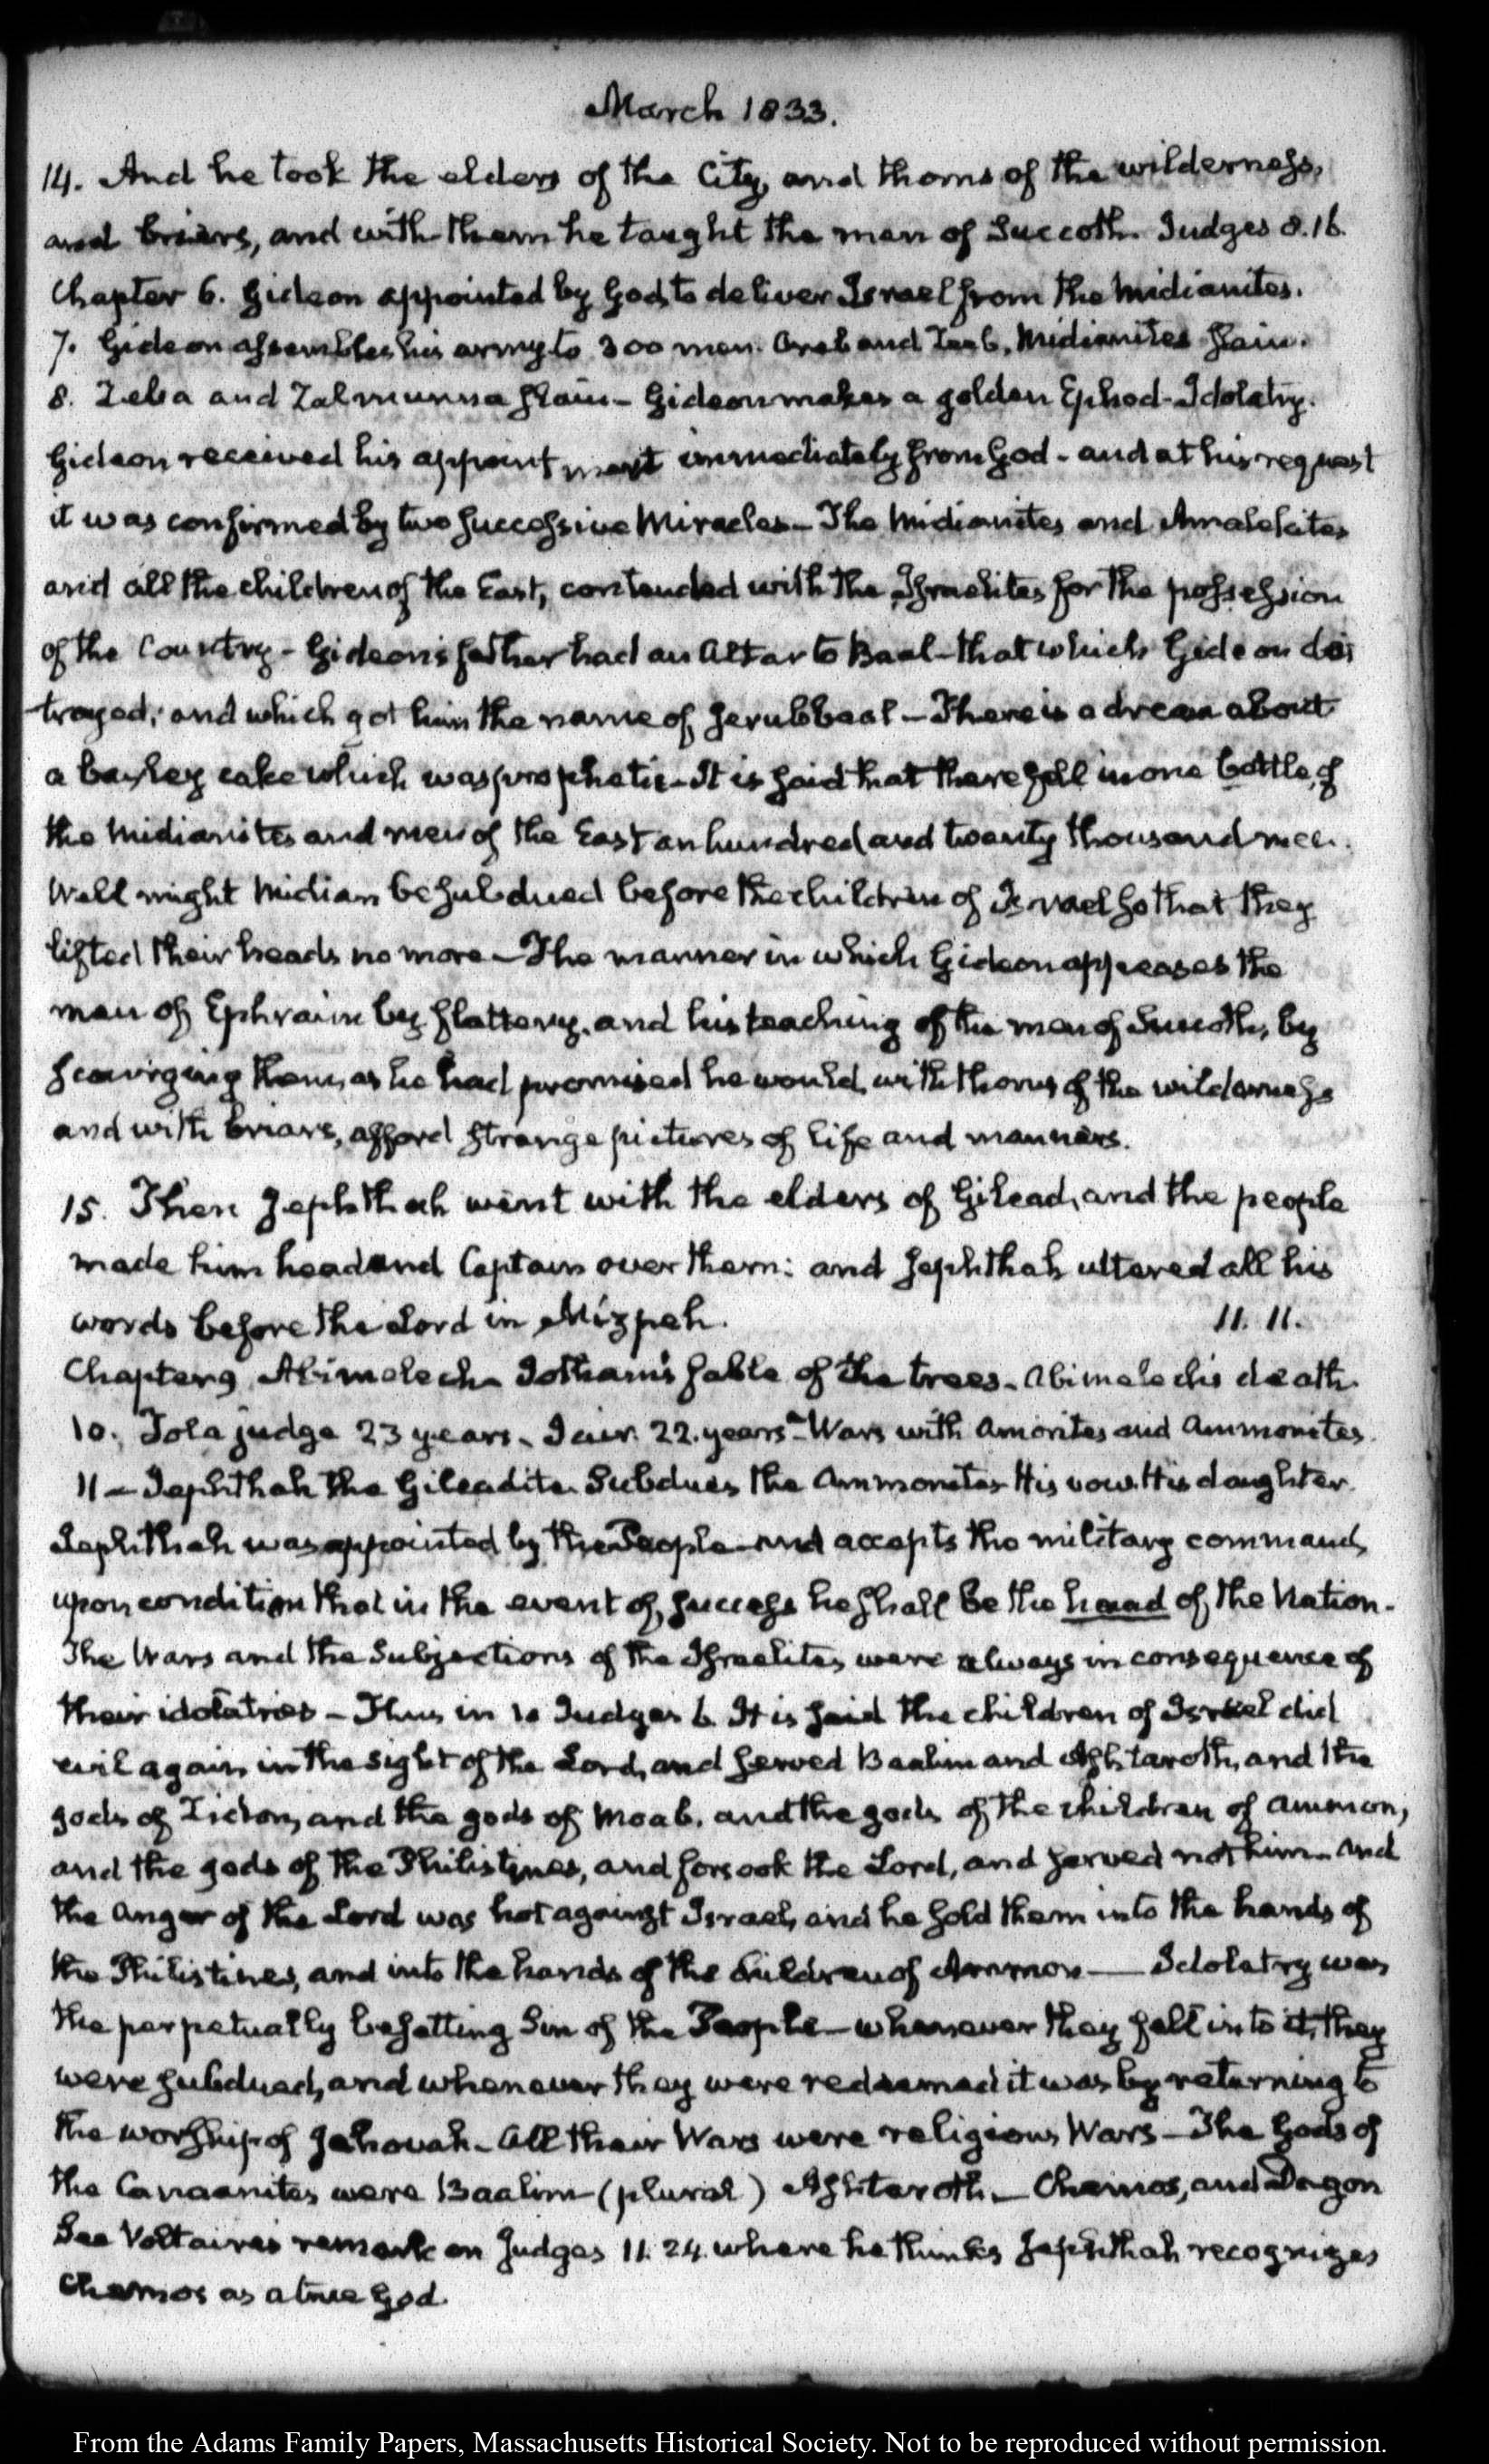 March 1833.
14. And he took the elders of the City, and thorns of the wilderness,
and briars, and with them he taught the men of Succoth. Judges 8.16.
Chapter 6. Gideon appointed by God, to deliver Israel from the Midianites.
7. Gideon assembles his army to 300 men. Oreb and Zeeb, Midianites slain.
8. Zeba and Zalmunna slain – Gideon makes a golden Ephod – Idolatry.
Gideon received his appointment immediately from God – and at his request
it was confirmed by two successive Miracles – The Midianites and Amalekites
and all the children of the East, contended with the Israelites for the possession
of the Country – Gideon's father had an Altar to Baal – that which Gideon des
troyed; and which got him the name of Jerubbaal – There is a dream about
a barley cake which was prophetic – It is said that there fell in one battle, of
the Midianites and men of the East an hundred and twenty thousand men.
Well might Midian be subdued before the children of Israel so that they
lifted their heads no more – The manner in which Gideon appeases the
men of Ephraim by flattery, and his teaching of the men of Succoth, by
scourging them, as he had promised he would, with thorns of the wilderness
and with briars, afford strange pictures of life and manners.
15. Then Jephthah went with the elders of Gilead, and the people
made him head and Captain over them: and Jephthah uttered all his
words before the Lord in Mizpeh. 11. 11.
Chapter 9 Abimelech – Jotham's fable of the trees – Abimelech's death.
10. Tola judge 23 years – Jair. 22. years – Wars with Amorites and Ammonites.
11 – Jephthah the Gileadite. Subdues the Ammonites – His vow. His daughter.
Jephthah was appointed by the People – and accepts the military command,
upon condition that in the event of success he shall be the head of the Nation.
The Wars and the Subjections of the Israelites were always in consequence of
their idolatries – Thus in 10 Judges 6. It is said the children of Israel did
evil again in the sight of the Lord, and served Baalim and Ashtaroth, and the
gods of Zidon, and the gods of Moab, and the gods of the children of Ammon,
and the gods of the Philistines, and forsook the Lord, and served not him – And
the anger of the Lord was hot against Israel, and he sold them into the hands of
the Philistines, and into the hands of the children of Ammon — Idolatry was
the perpetually besetting Sin of the People – whenever they fell into it, they
were subdued, and whenever they were redeemed it was by returning to
the worship of Jehovah – All their Wars were religious Wars – The Gods of
the Canaanites were Baalim – (plural) Ashtaroth – Chemos, and Dagon
See Voltaire's remark on Judges 11. 24. where he thinks Jephthah recognizes
Chemos as a true God.
From the Adams Family Papers, Massachusetts Historical Society. Not to be reproduced without permission.